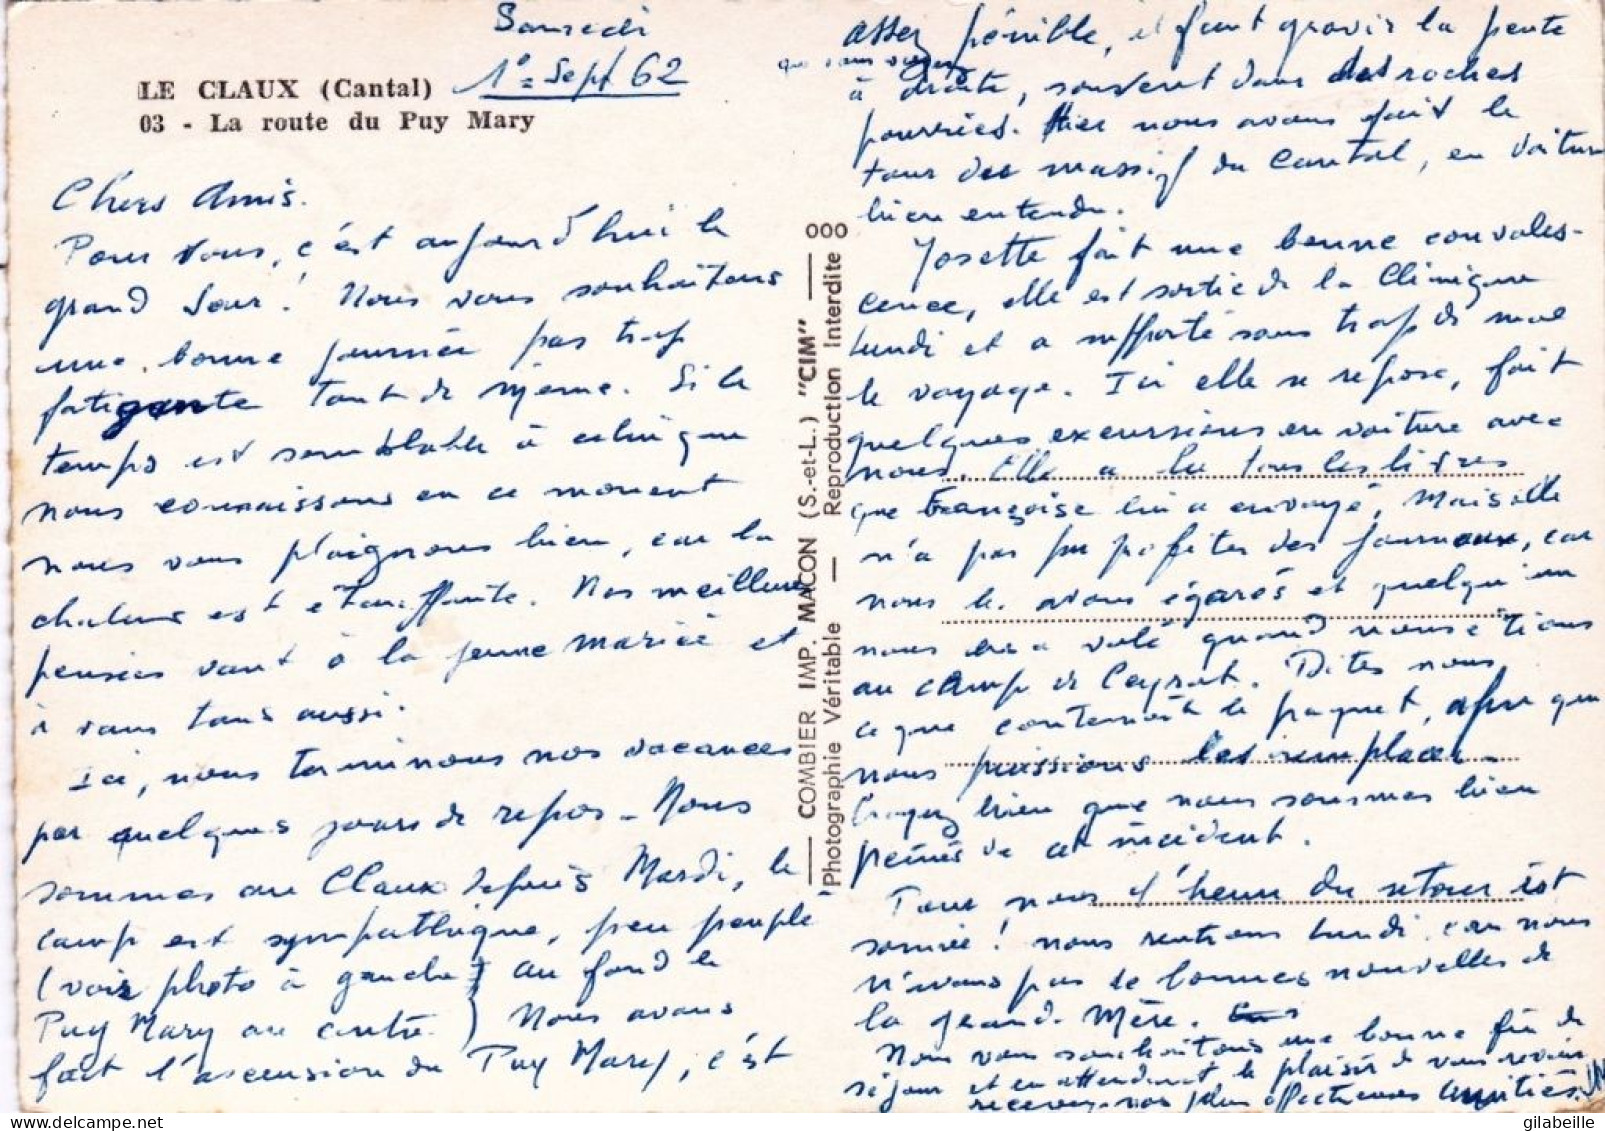 Samedi
1° Sept 62
LE CLAUX (Cantal)
03 - La route du Puy Mary
Chers Amis.
Pour vous, c'est aujourd'hui le
grand Jour! Nous vous souhaitons
une bonne journée pas trop
fatigante tout de même. Si le
temps est semblable à celui que
nous connaissons en ce moment
nous vous plaignons bien, car la
chaleur est étouffante. Nos meilleures
pensées vont à la jeune mariée et
à vous tous aussi.
Ici, nous terminons nos vacances
par quelques jours de repos - Nous
sommes au Claux depuis Mardi, le
camp est sympathique, peu peuplé
(voir photo à gauche) au fond le
Puy Mary au centre) Nous avons
fait l'ascension du Puy Mary, c'est
COMBIER IMP. MACON (S.-et-L.) "CIM"
Photographie Véritable — Reproduction Interdite
000
assez pénible, il faut gravir la pente
que vous voyez
à droite, souvent dans des roches
pourries. Hier nous avons fait le
tour du massif du Cantal, en voiture
bien entendu.
Josette fait une bonne convales-
cence, elle est sortie de la Clinique
lundi et a supporté sans trop de mal
le voyage. Ici elle se repose, fait
quelques excursions en voiture avec
nous. Elle a lu tous les livres
que Françoise lui a envoyé, Mais elle
n'a pas pu profiter des journaux, car
nous les avons égarés et quelqu'un
nous en a volé quand nous étions
au camp de Ceyrat. Dites nous
ce que contenait le paquet, afin que
nous puissions les remplacer.
Croyez bien que nous sommes bien
peinés de cet incident.
Pour nous l'heure du retour est
sonnée! nous rentrons lundi, car nous
n'avons pas de bonnes nouvelles de
la grand-Mère.
Nous vous souhaitons une bonne fin de
séjour et en attendant le plaisir de vous revoir
recevez nos plus affectueuses amitiés.
gilabeille